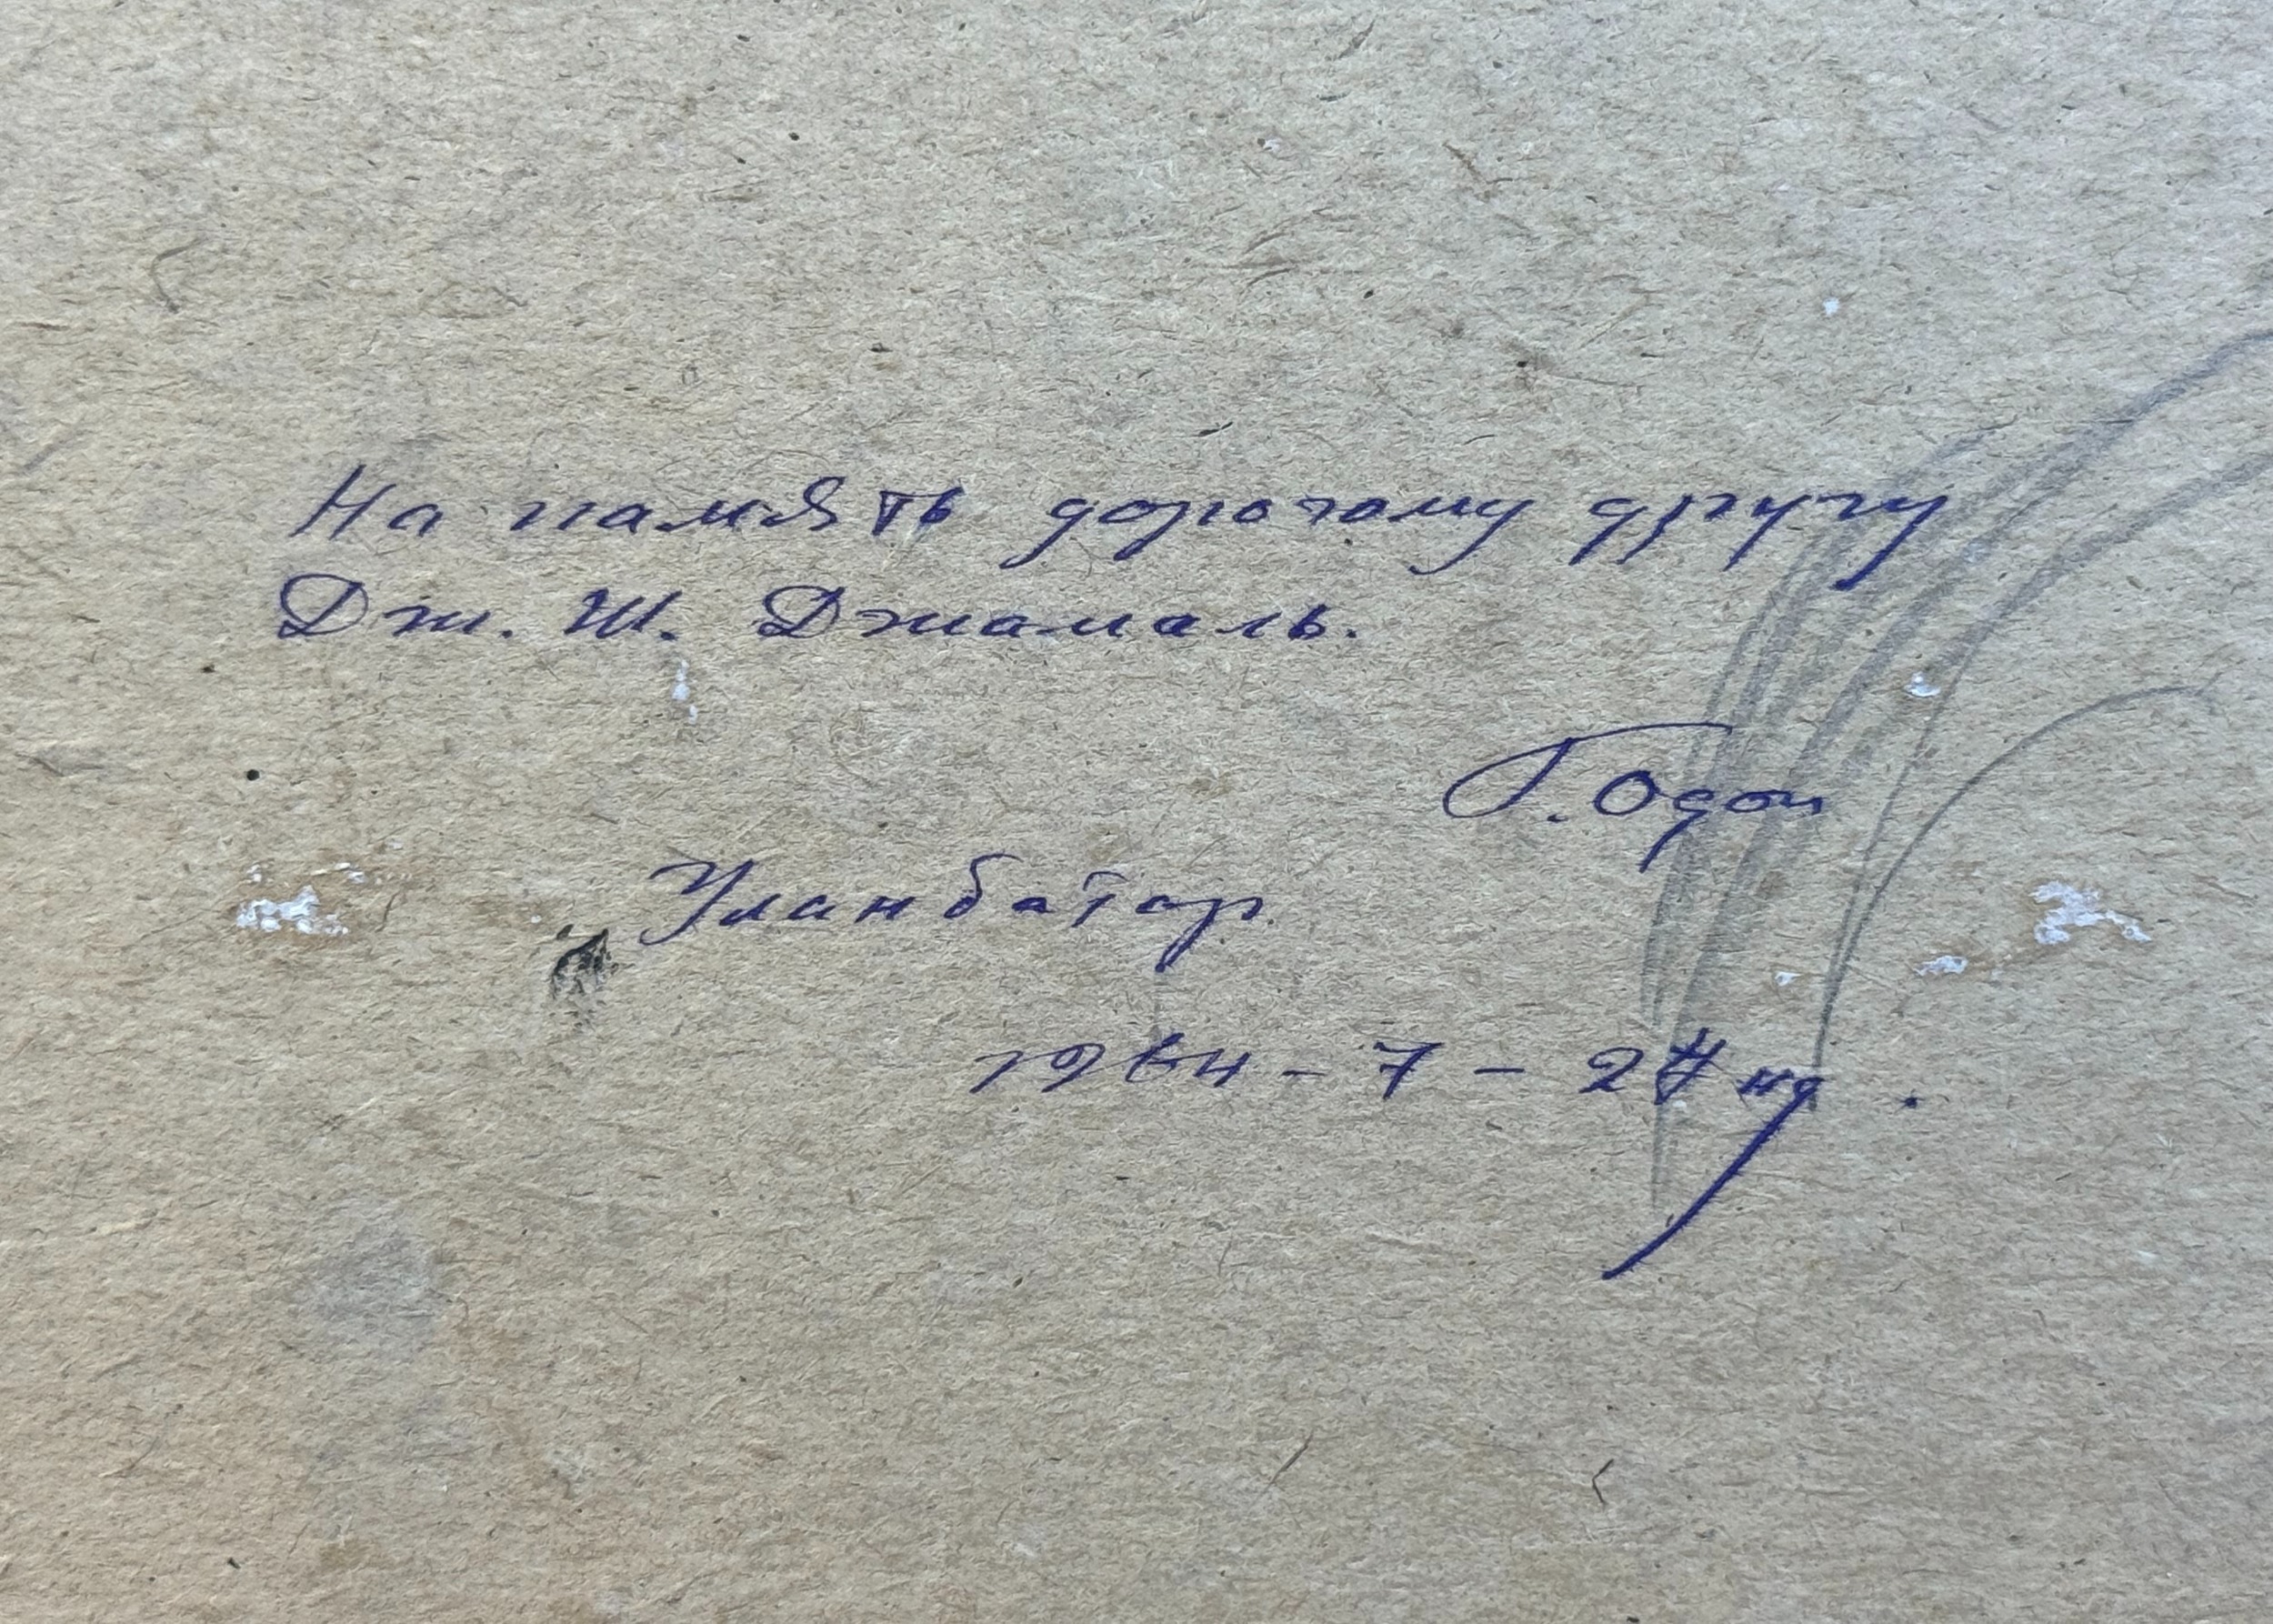 На память дорогому другу
Дж. Ш. Джамаль.
Г. Одон
Уланбатор.
1964-7-24 нд.